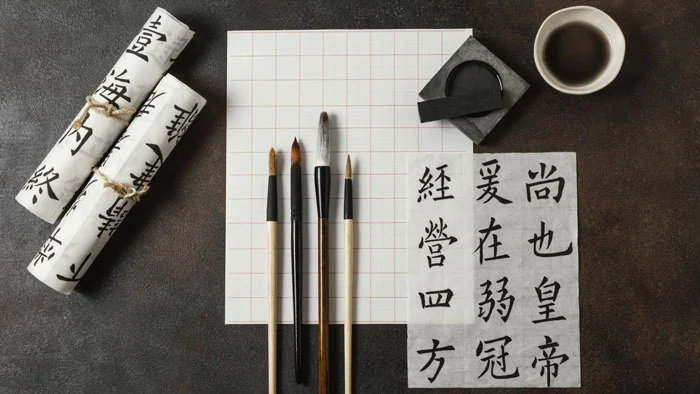 尚也皇帝
爰在弱冠
經營四方
壹海内終